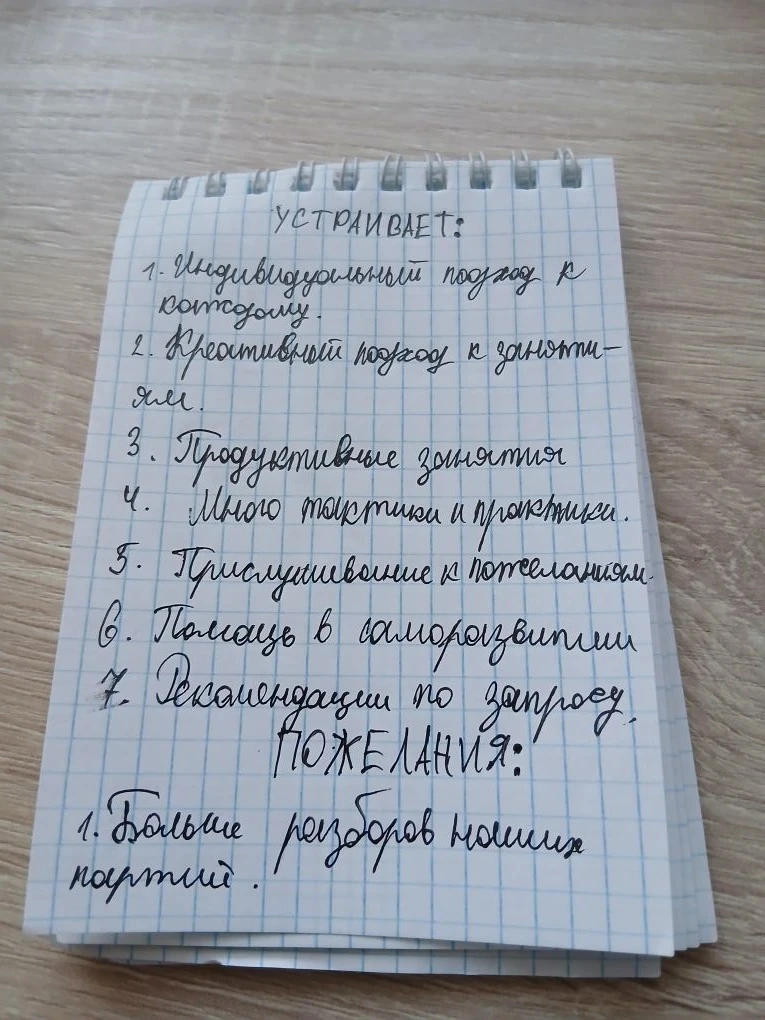 УСТРАИВАЕТ:
1. Индивидуальный подход к
каждому.
2. Креативный подход к заняти-
ям.
3. Продуктивные занятия
4. Много тактики и практики.
5. Прислушивание к пожеланиям.
6. Помощь в саморазвитии
7. Рекомендации по запросу.
ПОЖЕЛАНИЯ:
1. Больше разборов наших
партий.